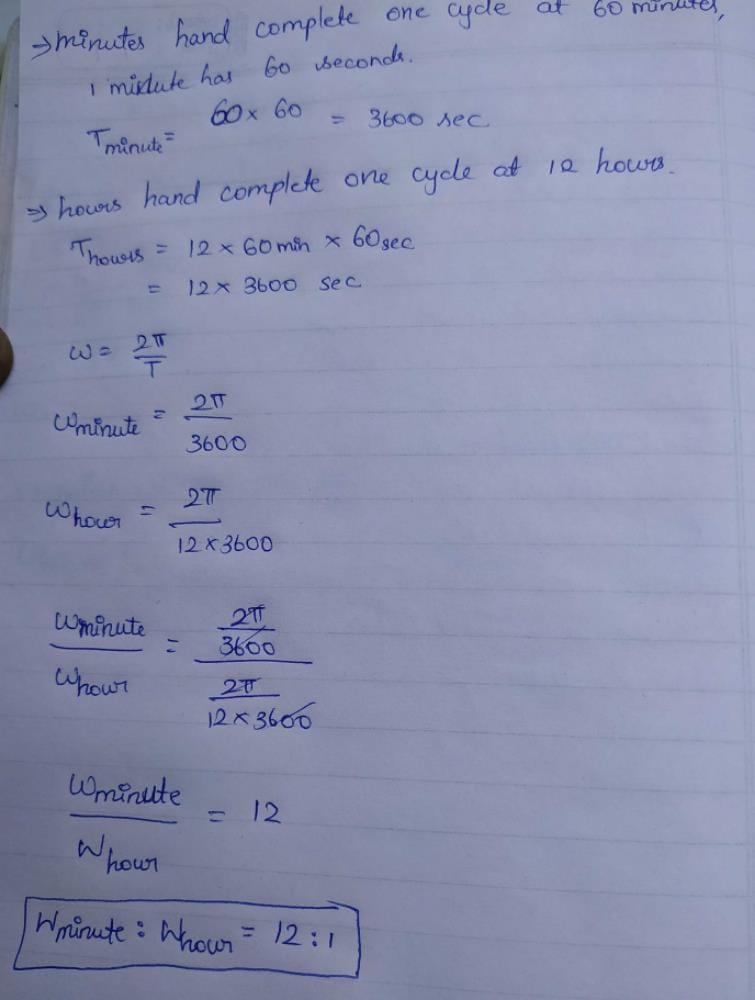 ⇒ minutes hand complete one cycle at 60 minutes,
1 minute has 60 seconds.
Tminute = 60 × 60 = 3600 sec
⇒ hours hand complete one cycle at 12 hours.
Thours = 12 × 60 min × 60 sec
= 12 × 3600 sec
ω = 2π/T
ωminute = 2π/3600
ωhour = 2π/12×3600
ωminute/ωhour = 2π/3600 / 2π/12×3600
ωminute/Whour = 12
Wminute : Whour = 12 : 1